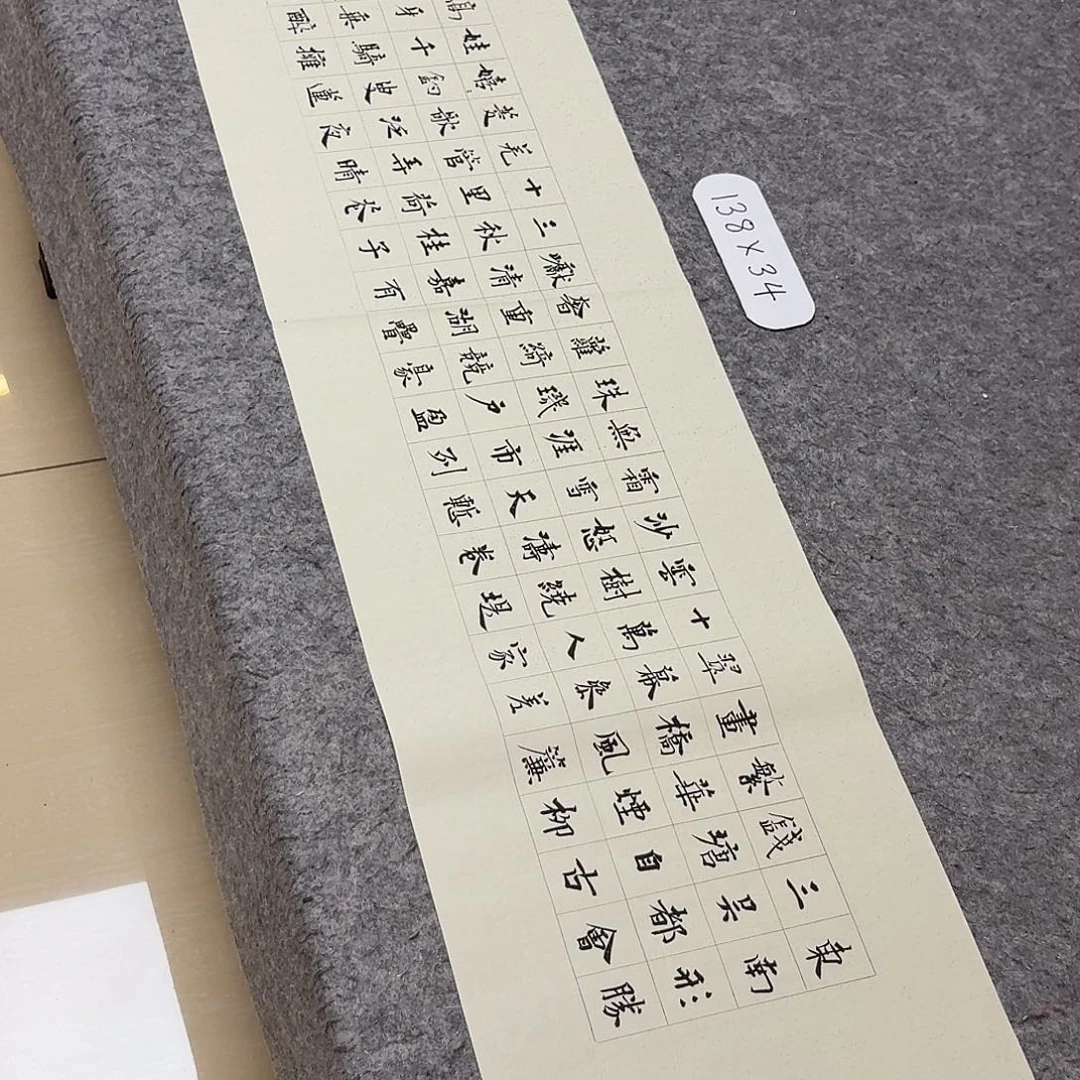 東南形勝
三吳都會
錢塘自古
繁華煙柳
畫橋風簾
翠幕參差
十萬人家
雲樹繞堤
沙怒濤卷
霜雪天塹
無涯市列
珠璣戶盈
蘿綺競豪
奢重湖疊
巘清嘉有
三秋桂子
十里荷花
羌管弄晴
菱歌泛夜
嬉釣叟蓮
娃千騎擁
高牙乘醉
138×34